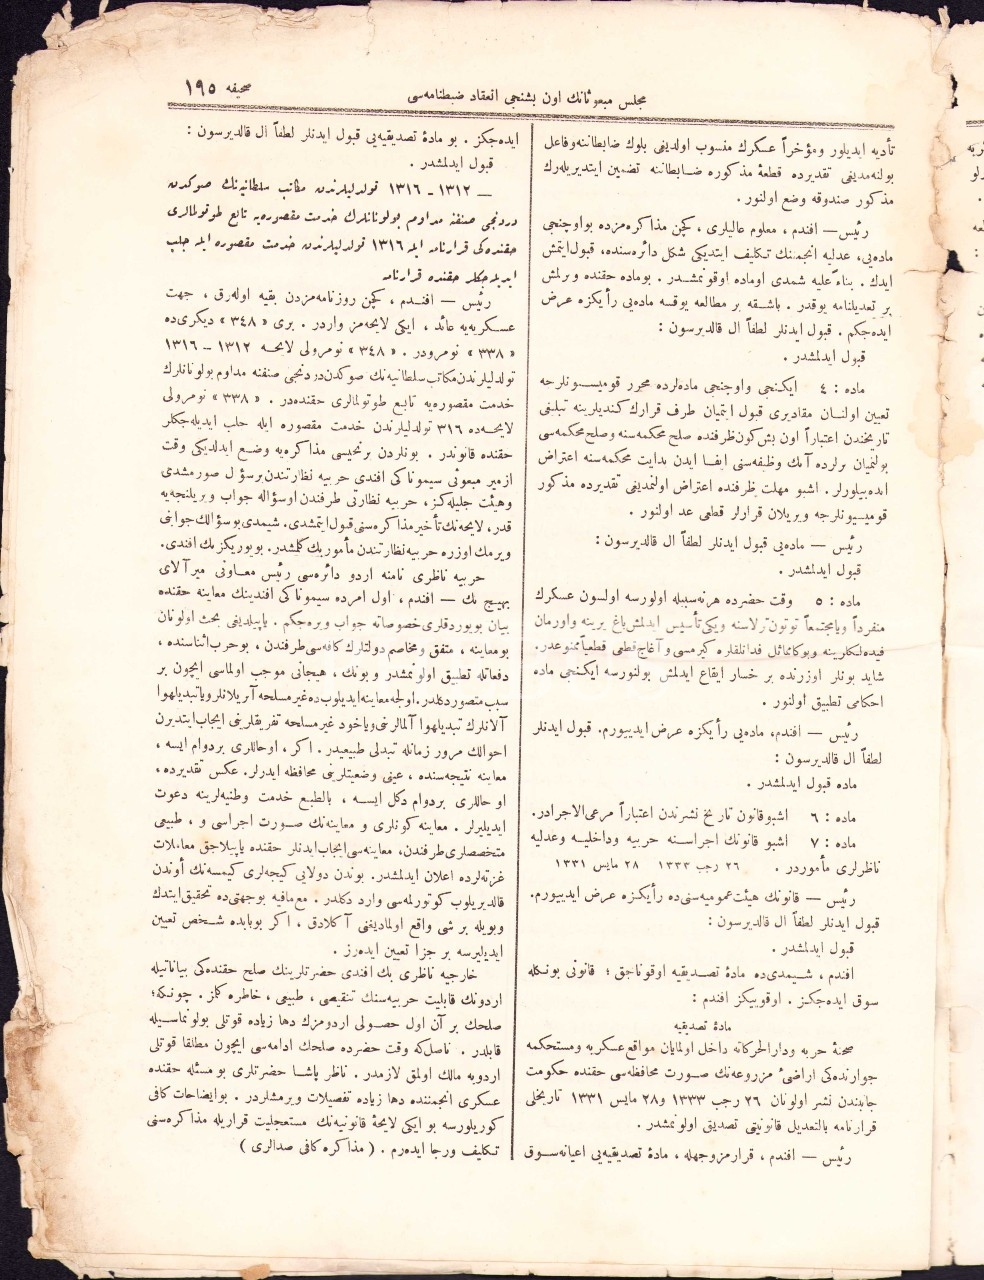 مجلس مبعوثانك اون بشنجی انعقاد ضبطنامه‌سی
صحیفه ١٩٥
تأدیه ایدیلور ومؤخراً عسكرك منسوب اولدیغی بلوك ضابطاننه وفاعل
بولنه‌مدیغی تقدیرده قطعهٔ مذكوره ضـابطاننه تضمین ایتدیریله‌رك
مذكور صندوقه وضع اولنور .
رئیس — افندم ، معلوم عالیلری ، كچن مذاكره‌مزده بواوچنجی
ماده‌یی، عدلیه انجمننك تـكلیف ایتدیكی شكل دائره‌سنده، قبول‌ایتمش
ایدك . بناءً علیه شمدی اوماده اوقونمشدر . بوماده حقنده ویرلمش
بر تعدیلنامه یوقدر . باشـقه بر مطالعه یوقسه ماده‌یی رأیكزه عرض
ایده‌جكم . قبول ایدنلر لطفاً ال قالدیرسون :
قبول ایدلمشدر .
ماده : ٤ ایكـنجی واوچنجی ماده‌لرده محرر قومیسـونلرجه
تعیین اولنـان مقادیری قبول ایتمیان طرف قرارك كندیلرینه تبلیغی
تاریخندن اعتباراً اون بش كون ظرفنده صلح محكمه‌سنه وصلح محكمه‌سی
بولنمیان یرلرده آنك وظیفه‌سنی ایفـا ایدن بدایت محكمه‌سنه اعتراض
ایده‌بیلورلر . اشبو مهلت ظرفنده اعتراض اولنمدیغی تقدیرده مذكور
قومیسیونلرجه ویریلان قرارلر قطعی عد اولنور .
رئیس — ماده‌یی قبول ایدنلر لطفاً ال قالدیرسون :
قبول ایدلمشدر .
ماده : ٥ وقت حضرده هرنه‌سببله اولورسه اولسون عسكرك
منفرداً ویامجتمعاً توتون‌تارلاسنه ویكی‌تأسیس ایدلمش‌باغ یرینه واورمان
فیده‌لكلرینه وبوكامماثل فدانلقلره كیرمسی و آغاج‌قطعی قطعیاًممنوعدر.
شاید بونلر اوزرنده بر خسار ایقاع ایدلمش بولنورسه ایكنجی ماده
احكامی تطبیق اولنور .
رئیس — افندم، ماده‌یی رأیكزه عرض ایدییورم. قبول ایدنلر
لطفاً ال قالدیرسون :
ماده قبول ایدلمشدر .
ماده : ٦ اشبوقانون تاریخ نشرندن اعتباراً مرعی‌الاجرادر.
ماده : ٧ اشبو قانونك اجراسـنه حربیه وداخلیـه وعدلیه
ناظرلری مأموردر . ٢٦ رجب ١٣٣٣ ٢٨ مایس ١٣٣١
رئیس — قانونك هیئت‌عمومیه‌سنی‌ده رأیكزه عرض ایدییورم.
قبول ایدنلر لطفاً ال قالدیرسون :
قبول ایدلمشدر .
افندم ، شـیمدی‌ده مادهٔ تصـدیقیه اوقوناجق ؛ قانونی بونـكله
سوق ایده‌جكـز . اوقوییكز افندم :
مادهٔ تصدیقیه
صحنهٔ حربه ودارالحركاته داخل اولمایان مواقع عسكریه ومستحكمه
جوارنده‌كی اراضیٔ مزروعه‌نك صـورت محافظه‌سی حقنده حكومت
جانبندن نشر اولونان ٢٦ رجب ١٣٣٣ و٢٨ مایس ١٣٣١ تاریخلی
قرارنامه بالتعدیل قانونیتی تصدیق اولونمشدر .
رئیس — افندم ، قرارمزوجهله ، مادهٔ تصدیقیه‌یی اعیانه‌سـوق
ایده‌جكز . بو مادهٔ تصدیقیه‌یی قبول ایدنلر لطفاً ال قالدیرسون :
قبول ایدلمشدر .
— ١٣١٢ - ١٣١٦ تولدلیلرندن مكاتب سلطانیه‌نك صوكدن
دردنجی صنفنه مداوم بولونانلرك خدمت مقصوره‌یه تابع طوتولمالری
حقنده‌كی قرارنامه ایله ١٣١٦ تولدلیلرندن خدمت مقصوره ایله جلب
ایدیله‌جكلر حقنده قرارنامه
رئیس — افنـدم ، كچن روزنامه‌مزدن بقیه اوله‌رق ، جهت
عسـكریه‌یه عائد ، ایكی لایحه‌مز واردر . بری « ٣٤٨ » دیگری‌ده
« ٣٣٨ » نومرودر . « ٣٤٨ » نومرولی لایحـه ١٣١٢ - ١٣١٦
تولدلیلرندن‌مكاتب‌سلطانیه‌نك صوكدن‌دردنجی صنفنه مداوم بولونانلرك
خدمت مقصوره‌یه تابـع طوتولمالری حقنده‌در . « ٣٣٨ » نومرولی
لایحـه‌ده ٣١٦ تولدلیلرندن خدمت مقصوره ایله جلب ایدیله‌جكلر
حقنده قانوندر . بونلردن برنجیسی مذاكره‌یه وضـع ایدلدیكی وقت
ازمیر مبعوثی سیمونا كی افندی حربیه نظارتندن برسؤ ال صورمشدی
وهیئت جلیله‌كز ، حربیه نظارتی طرفندن اوسؤاله جواب ویریلنجه‌یه
قدر، لایحه‌نك‌تأخیر مذاكره‌سنی قبول ایتمشدی. شیمدی‌بوسؤالك‌جوابنی
ویرمك اوزره حربیه نظارتندن مأموربك كلمشدر. بویوریكزبك افندی.
حربیه ناظری نامنه اردو دائره‌سی رئیس معـاونی میرآلای
بهیـج بك — افندم ، اول امرده سیموناكی افندینك معاینه حقنده
بیان بویوردقلری خصوصاته جواب ویره‌جكم . یاپیلدیغی بحث اولونان
بومعاینه ، متفق ومخاصم دولتلرك كافه‌سی طرفندن ، بوحرب‌اثناسنده ،
دفعاتله تطبیق اولونمشدر و بونك ، هیجانی موجب اولماسی ایچون بر
سبب متصور دكلدر. اولجه‌معاینه ایدیلوب‌ده غیرمسلحه آیریلانلر ویاتبدیلهوا
آلانلرك تبدیلهوا آلمالرنی ویاخود غیرمسلحه تفریقلرینی ایجاب‌ایتدیرن
احوالك مرور زمانله تبدلی طبیعیدر . اكر ، اوحاللری بردوام ایسه ،
معاینه نتیجه‌سنده ، عینی وضعیتلرینی محافظه ایدرلر. عكس تقدیرده ،
او حاللری بردوام دكل ایسـه ، بالطبع خدمت وطنیه‌لرینه دعوت
ایدیلیرلر . معاینه كونلری و معاینه‌نك صـورت اجراسی و ، طبیعی
متخصصلری طرفندن، معاینه‌سی ایجاب‌ایدنلر حقنده یاپیلاجق معاملات
غزته‌لرده اعلان ایدلمشدر. بوندن دولایی كیجه‌لری كیمسه‌نك أوندن
قالدیریلوب كوتورلمه‌سی وارد دكلدر . مع‌مافیه بوجهتی‌ده تحقیق‌ایتدك
وبویله بر شی واقع اولمادیغنی آكلادق ، اكر بوبابده شـخص تعیین
ایدیلیرسه بر جزا تعیین ایده‌رز .
خارجیه ناظری بك افندی حضرتلرینك صلح حقنده‌كی بیاناتیله
اردونك قابلیت حربیه‌سنك تنقیصی ، طبیعی ، خاطره كلمز . چونكه؛
صلحك بر آن اول حصـولی اردومزك دها زیاده قوتلی بولونماسـیله
قابلدر . ناصل‌كه وقت حضرده صلحك ادامه‌سی ایچون مطلقا قوتلی
اردویه مالك اولمق لازمدر . ناظر پاشـا حضرتلری بو مسئله حقنده
عسكری انجمننده دها زیاده تفصیلات ویرمشلردر . بوایضاحات كافی
كوریلورسه بو ایكی لایحهٔ قانونیه‌نك مستعجلیت قراریله مذاكره‌سنی
تـكلیف ورجا ایده‌رم . ( مذاكره كافی صدالری )